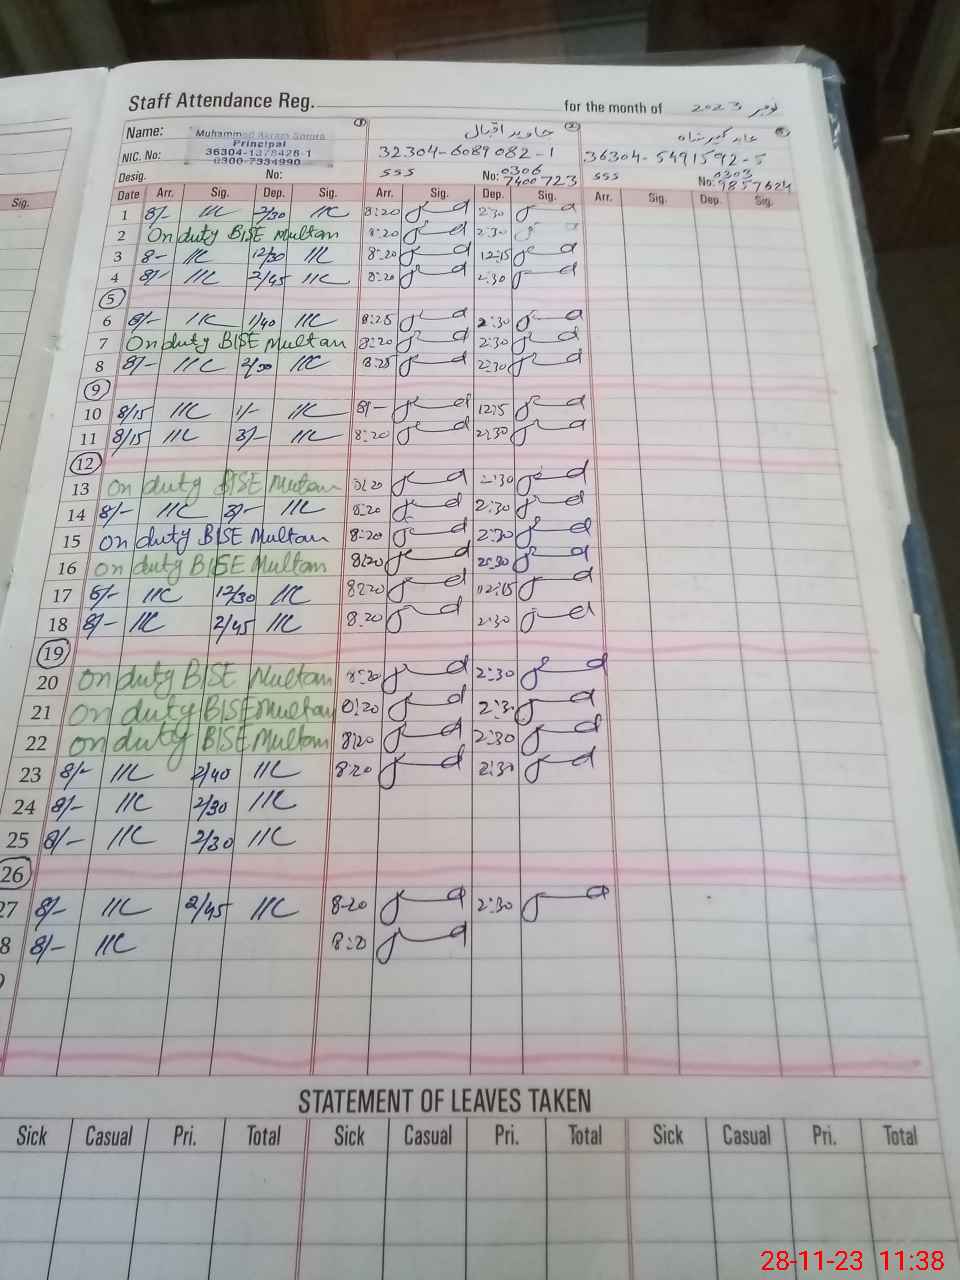 Staff Attendance Reg. for the month of نومبر 2023
Name: Muhammad Akram Principal جاوید اقبال
NIC. No: 36304-1378428-1 32304-6089082-1 36304-5491592-5
0300-7334990
Desig. No: SSS No: 0306 7400723 SSS No: 0303 9857624
Sig. Date Arr. Sig. Dep. Sig. Arr. Sig. Dep. Sig. Arr. Sig. Dep. Sig.
1 8/- 2/30 8:20 2:30
2 On duty BISE Multan 8:20 2:30
3 8- 12/30 8:20 12:15
4 8/- 2/45 8:20 2:30
5
6 8/- 1/40 8:25 2:30
7 On duty BISE Multan 8:20 2:30
8 8/- 2/30 8:25 2:30
9
10 8/15 1/- 8/- 12:15
11 8/15 3/- 8:20 2:30
12
13 On duty BISE Multan 8:20 2:30
14 8/- 3/- 8:20 2:30
15 On duty BISE Multan 8:20 2:30
16 On duty BISE Multan 8:20 2:30
17 8/- 12/30 8:20 12:15
18 8/- 2/45 8:20 2:30
19
20 On duty BISE Multan 8:20 2:30
21 On duty BISE Multan 8:20 2:30
22 On duty BISE Multan 8:20 2:30
23 8/- 2/40 8:20 2:30
24 8/- 2/30
25 8/- 2/30
26
27 8/- 2/45 8:20 2:30
8 8/- 8:20
STATEMENT OF LEAVES TAKEN
Sick Casual Pri. Total Sick Casual Pri. Total Sick Casual Pri. Total
28-11-23 11:38